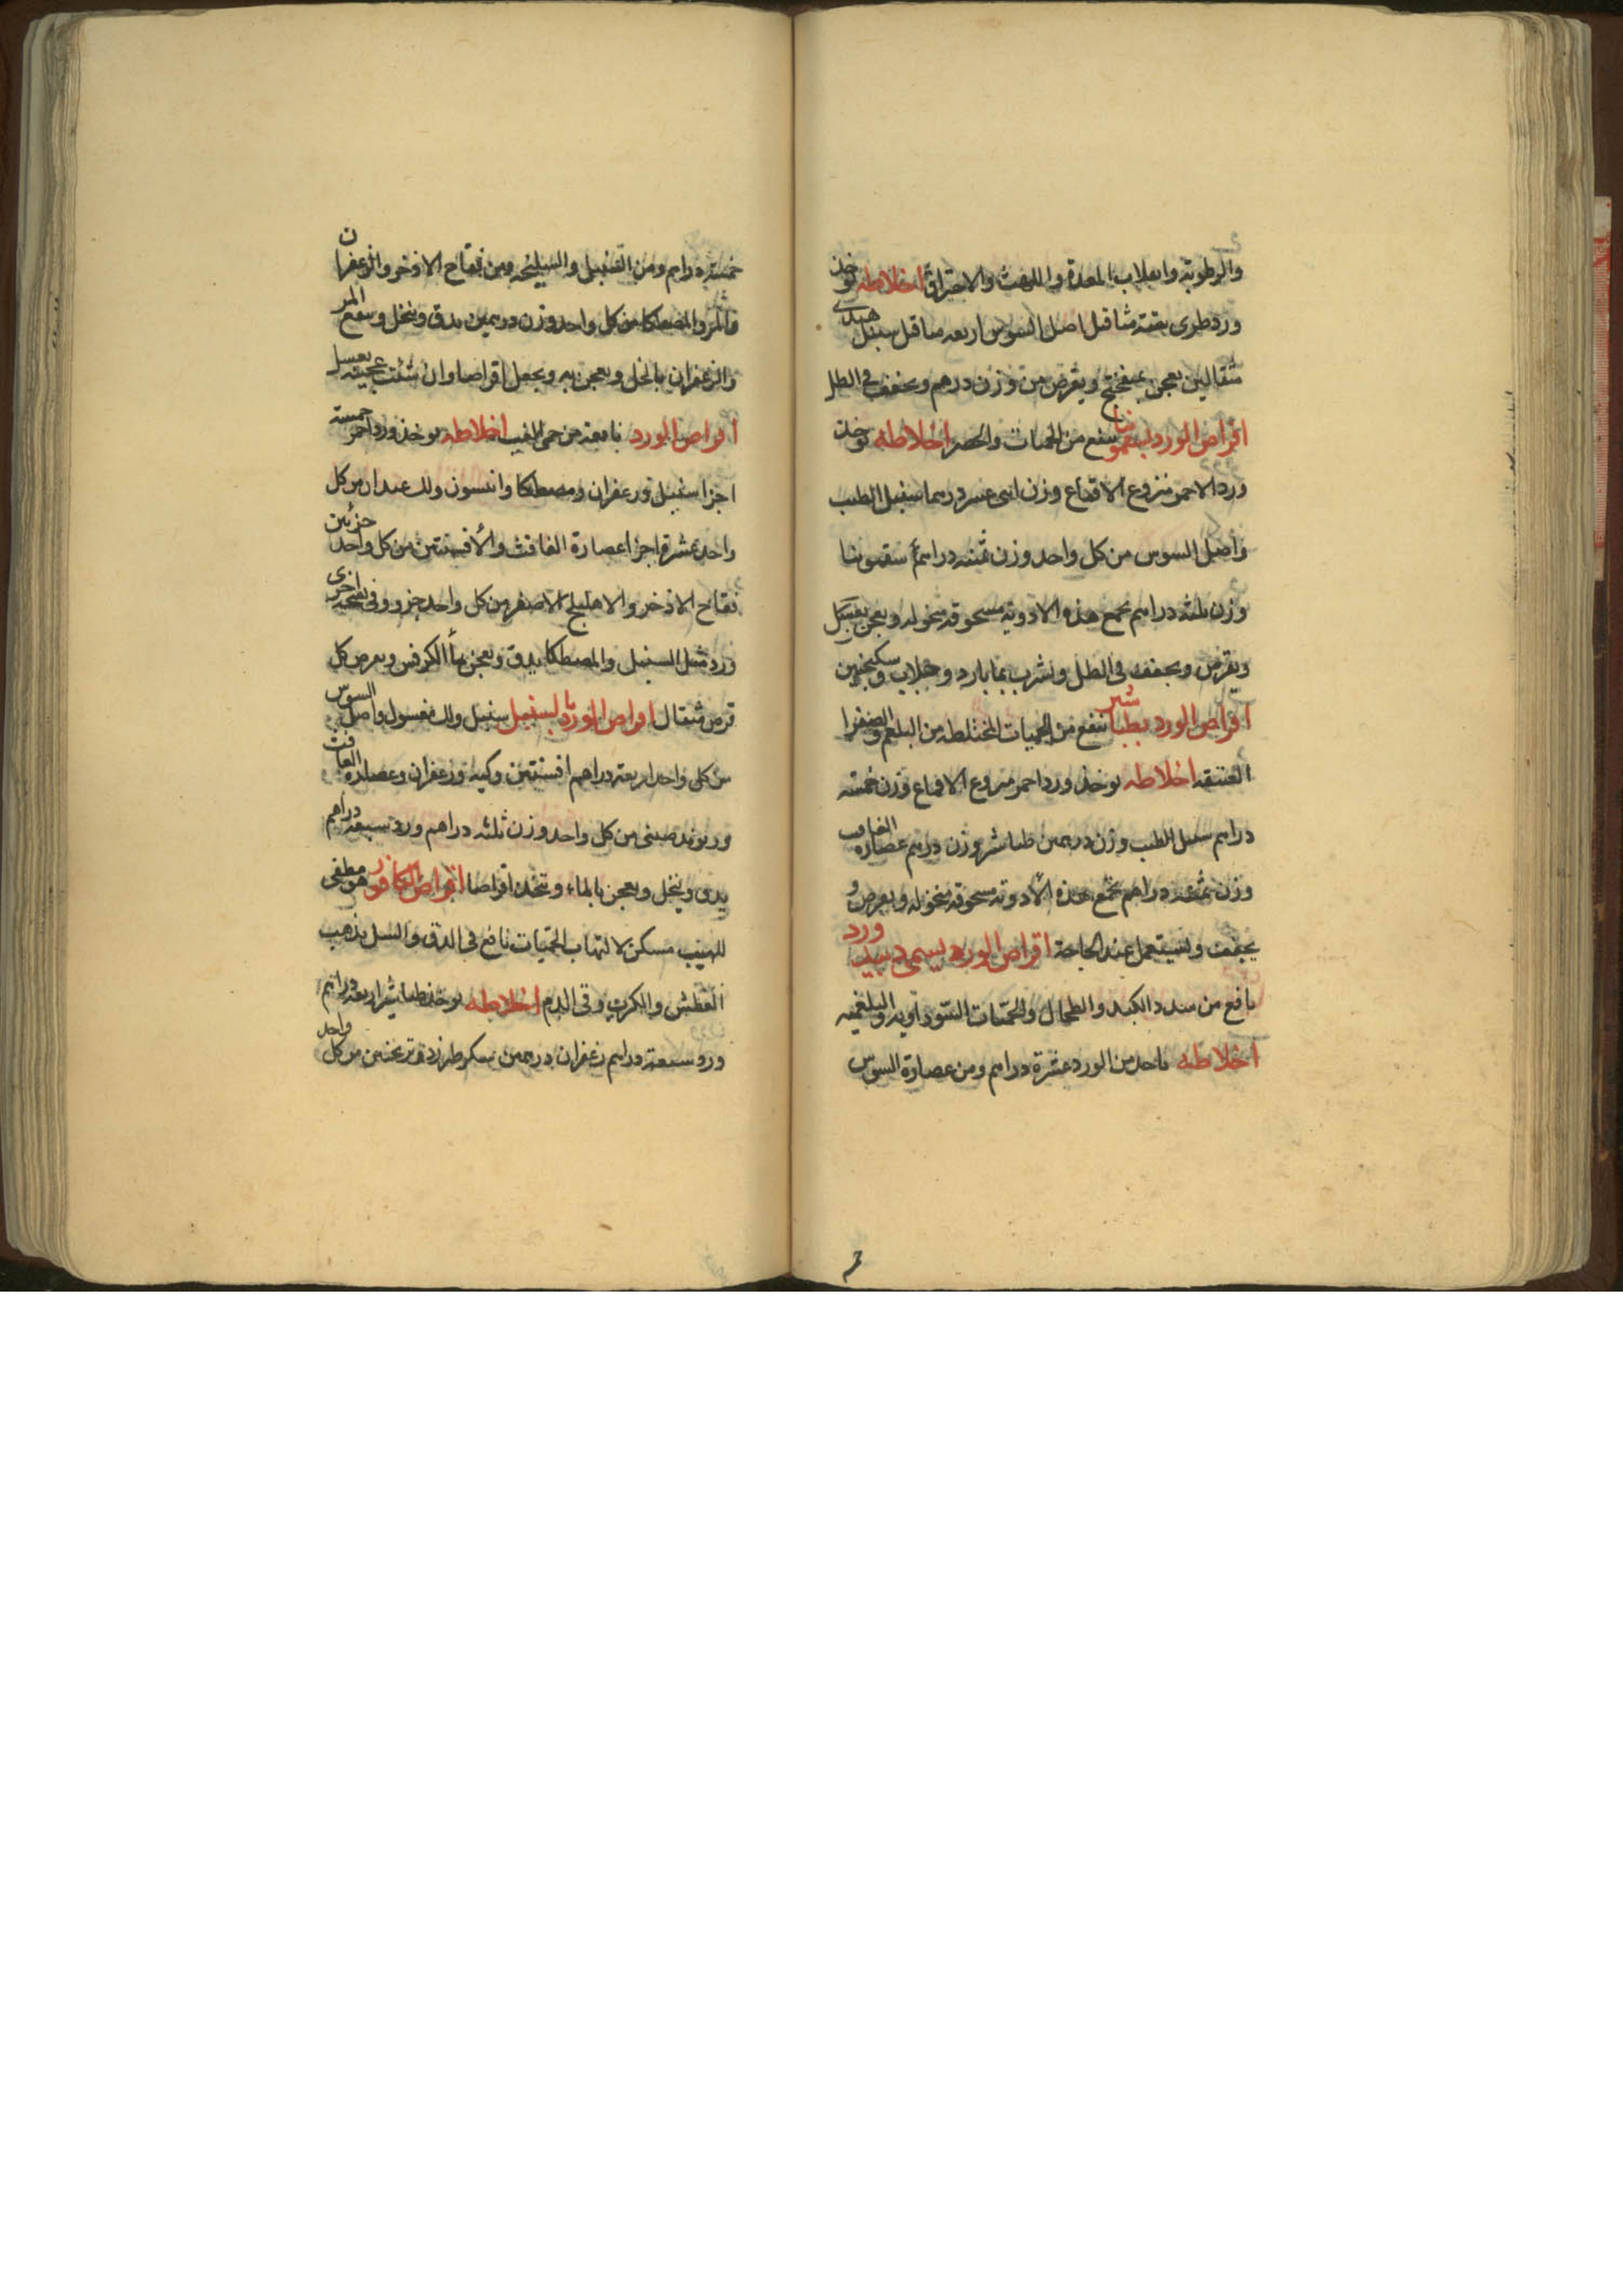 والرطوبة وانقلاب المعدة واللهث والاحتراق اخلاطه توخذ
ورد طرى ستة مثاقيل اصل السوس اربعه مثاقيل سنبل هندى
مثقالين يعجن بميفختج ويقرص من وزن درهم ويجفف فى الظل
اقراص الورد بسقمونيا ينفع من الحميات والحصر اخلاطه توخذ
ورد الاحمر منزوع الاقماع وزن اثنى عشر درهما سنبل الطيب
واصل السوس من كل واحد وزن ثمنيه دراهم سقمونيا
وزن ثلثه دراهم تجمع هذه الادوية مسحوقه منخوله ويعجن بعسل
ويقرص ويجفف فى الظل ويشرب بما بارد وجلاب وسكنجبين
اقراص الورد بطباشير تنفع من الحميات المختلطه من البلغم والصفرا
العتيقه اخلاطه توخذ ورد احمر منزوع الاقماع وزن خمسه
دراهم سنبل الطيب وزن درهمين طباشير وزن دراهم عصاره الغافت
وزن دراهم تجمع هذه الادويه مسحوقه منخوله ويقرص و
يجفف ويستعمل عند الحاجة اقراص الورد يسمى دبيد ورد
نافع من سدد الكبد والطحال والحميات السوداويه والبلغميه
اخلاطه ياخذ من الورد عشرة دراهم ومن عصارة السوس
خمسة دراهم ومن السنبل والسليخه ومن فقاح الاذخر والزعفران
والمر والمصطكا من كل واحد وزن درهمين يدق وينخل وينقع المر
والزعفران بالخل ويعجن به ويجعل اقراصا وان شئت عجنته بعسل
اقراص الورد نافعة من حمى الغب اخلاطه يوخذ ورد احمر خمسة
اجزا سنبل وزعفران ومصطكا وانيسون ولك عيدان من كل
واحد عشرة اجزا عصارة الغافث والافسنتين من كل واحد جزئين
فقاح الاذخر والاهليلج الاصفر من كل واحد جزو وفى نسخة اخرى
ورد مثل السنبل والمصطكا يدق ويعجن بماء الكرفس ويقرص كل
قرص مثقال اقراص الورد بالسنبل سنبل ولك مغسول واصل السوس
من كل واحد اربعة دراهم افسنتين وكيه وزعفران وعصارة الغافت
وريوند صينى من كل واحد وزن ثلثه دراهم ورد سبعة دراهم
يدق وينخل ويعجن بالماء وتتخذ اقراصا اقراص الكافور هو مطفى
للهيب مسكن لالتهاب الحميات نافع فى الدق والسل يذهب
العطش والكرب وقى الدم اخلاطه يوخذ طباشير اربعة دراهم
ورد سبعة دراهم زعفران درهمين سكر طبرزد وترنجبين من كل واحد